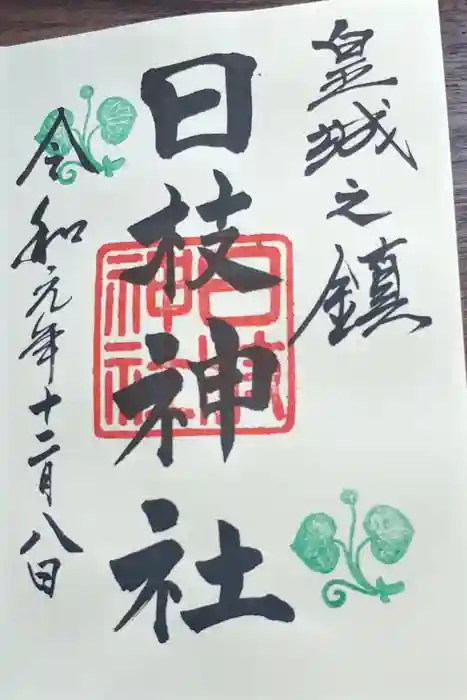 皇城之鎮
日枝神社
日枝神社
令和元年十二月八日